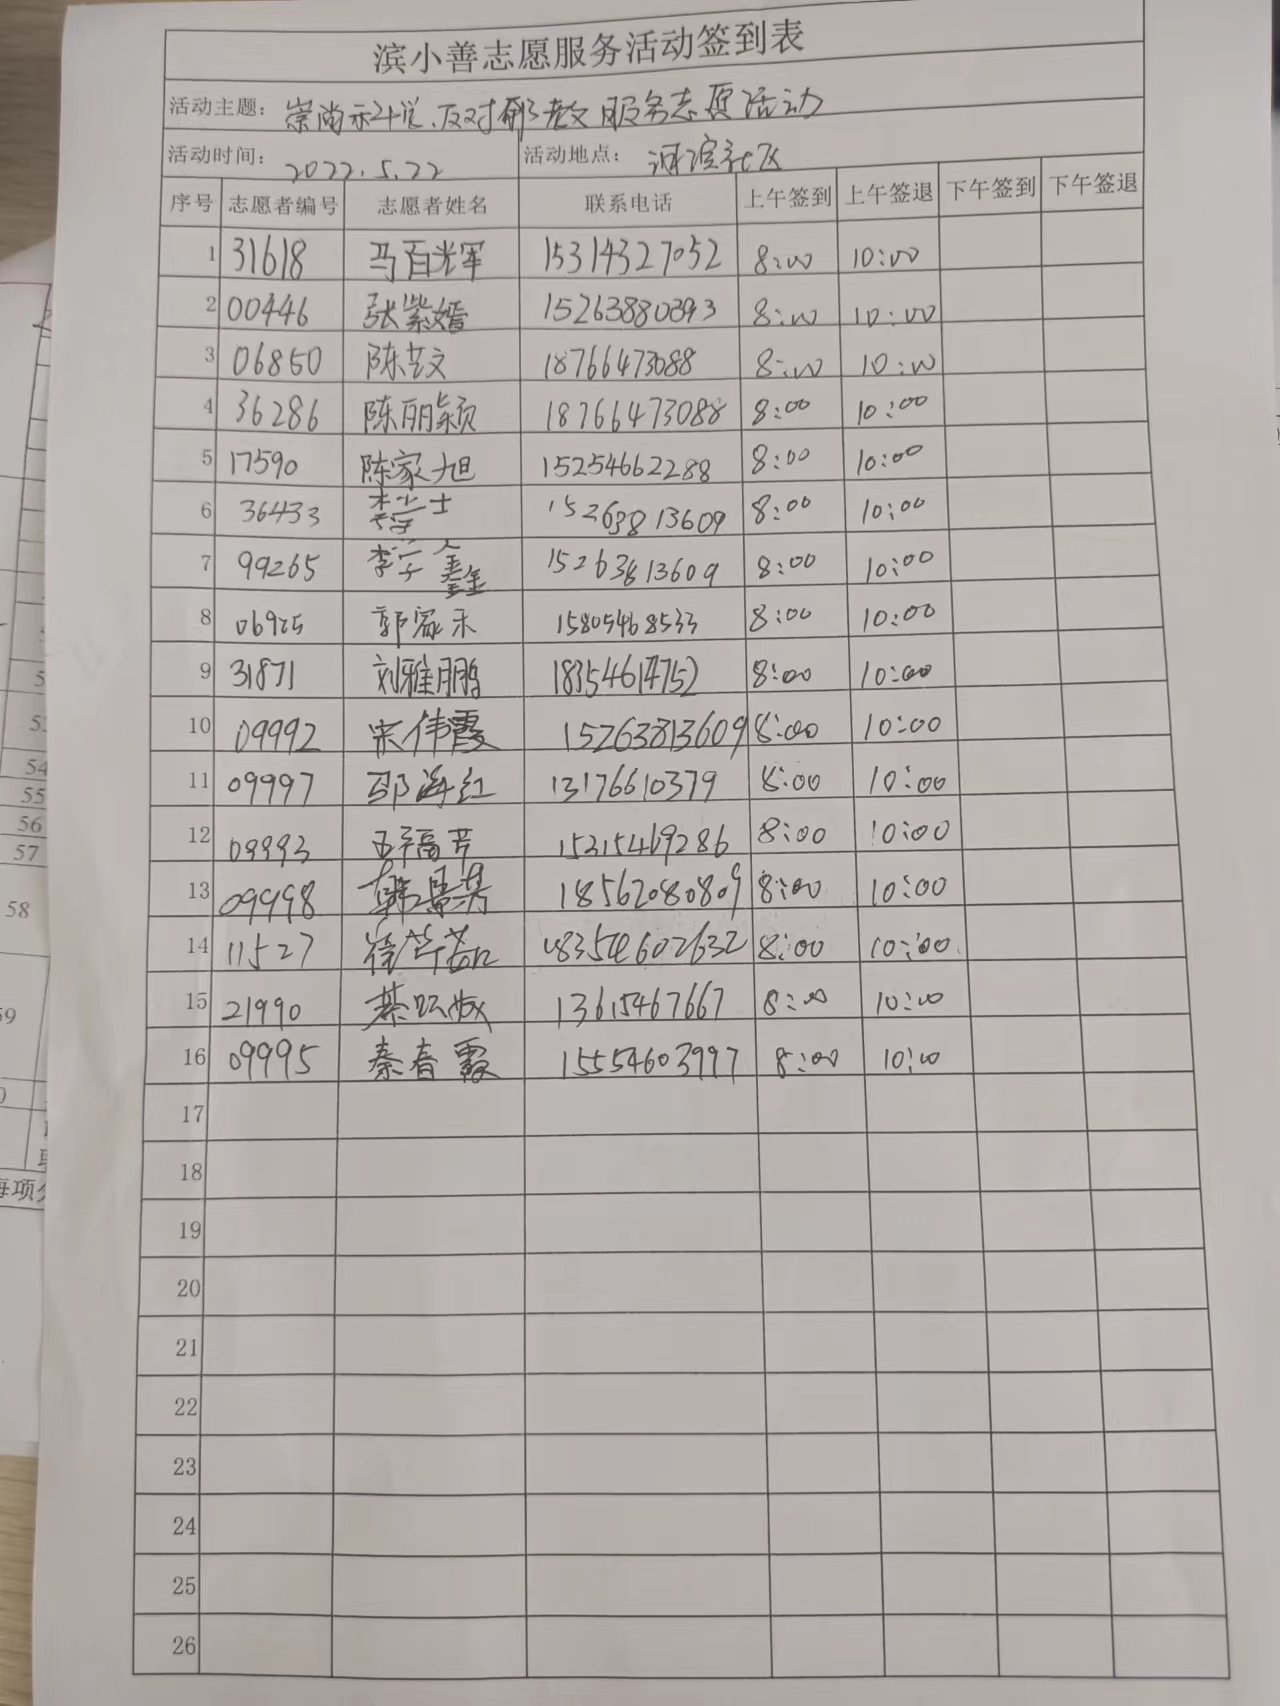 滨小善志愿服务活动签到表
活动主题: 崇尚科学、反对邪教 服务志愿活动
活动时间: 2022.5.22 活动地点: 社区
序号 志愿者编号 志愿者姓名 联系电话 上午签到 上午签退 下午签到 下午签退
1 31618 马百光军 15314327052 8:00 10:00
2 00446 张紫嫣 15263880393 8:00 10:00
3 06850 陈艺文 18766473088 8:00 10:00
4 36286 陈丽颖 18766473088 8:00 10:00
5 17590 陈家旭 15254662288 8:00 10:00
6 36433 李学士 15263813609 8:00 10:00
7 99265 李学鑫 15263813609 8:00 10:00
8 06925 郭家禾 15805468533 8:00 10:00
9 31871 刘雅鹏 18354614752 8:00 10:00
10 09992 宋伟霞 15263813609 8:00 10:00
11 09997 邵海红 13176610379 8:00 10:00
12 09993 福芹 15215469286 8:00 10:00
13 09998 韩景 18562080809 8:00 10:00
14 11527 18354602632 8:00 10:00
15 21990 13615467667 8:00 10:00
16 09995 秦春霞 15554603997 8:00 10:00
17
18
19
20
21
22
23
24
25
26
54
55
56
57
58
每项